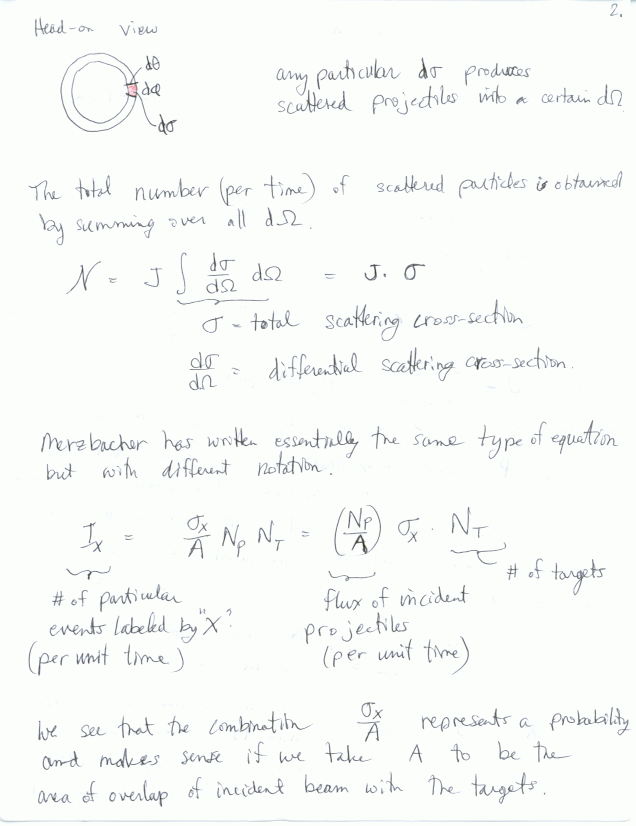 2.
Head-on View
dθ
dφ
dσ
any particular dσ produces
scattered projectiles into a certain dΩ
The total number (per time) of scattered particles is obtained
by summing over all dΩ.
N = J ∫ dσ/dΩ dΩ = J. σ
σ - total scattering cross-section
dσ/dΩ = differential scattering cross-section.
Merzbacher has written essentially the same type of equation
but with different notation.
I_x = σ_x/A N_p N_T = (N_p/A) σ_x · N_T
# of targets
# of particular
events labeled by "X".
(per unit time)
flux of incident
projectiles
(per unit time)
We see that the combination σ_x/A represents a probability
and makes sense if we take A to be the
area of overlap of incident beam with the targets.